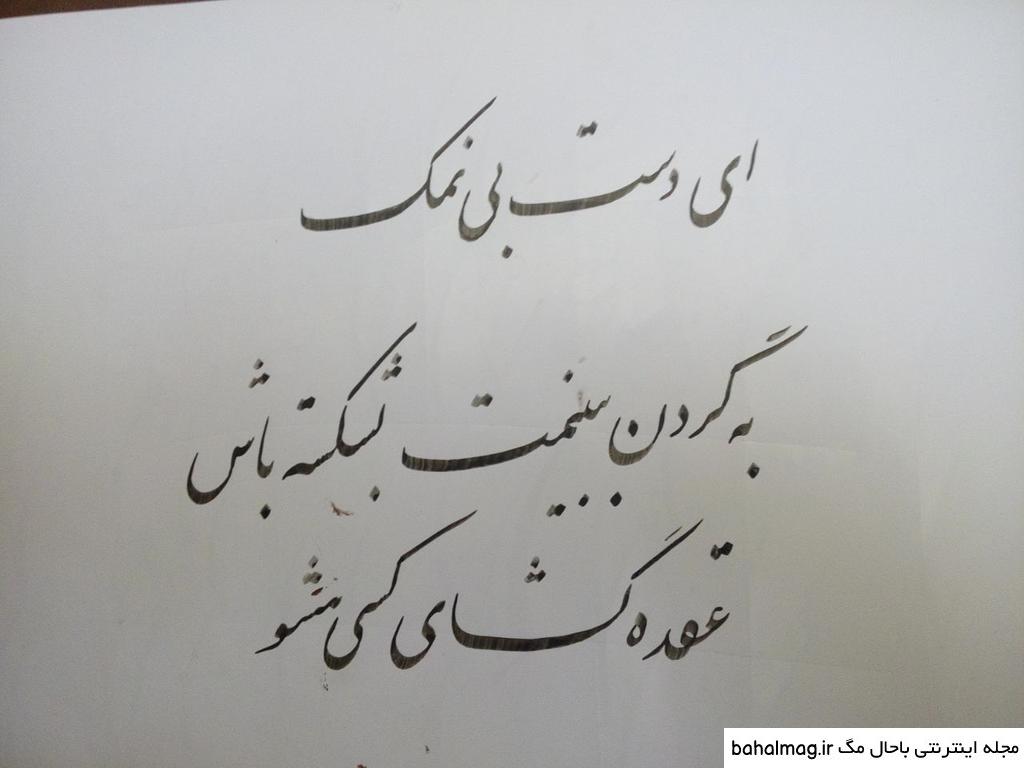 ای دست بی نمک
به گردن ببینمت بشکسته باش
عقده گشای کسی مشو
مجله اینترنتی باحال مگ bahalmag.ir